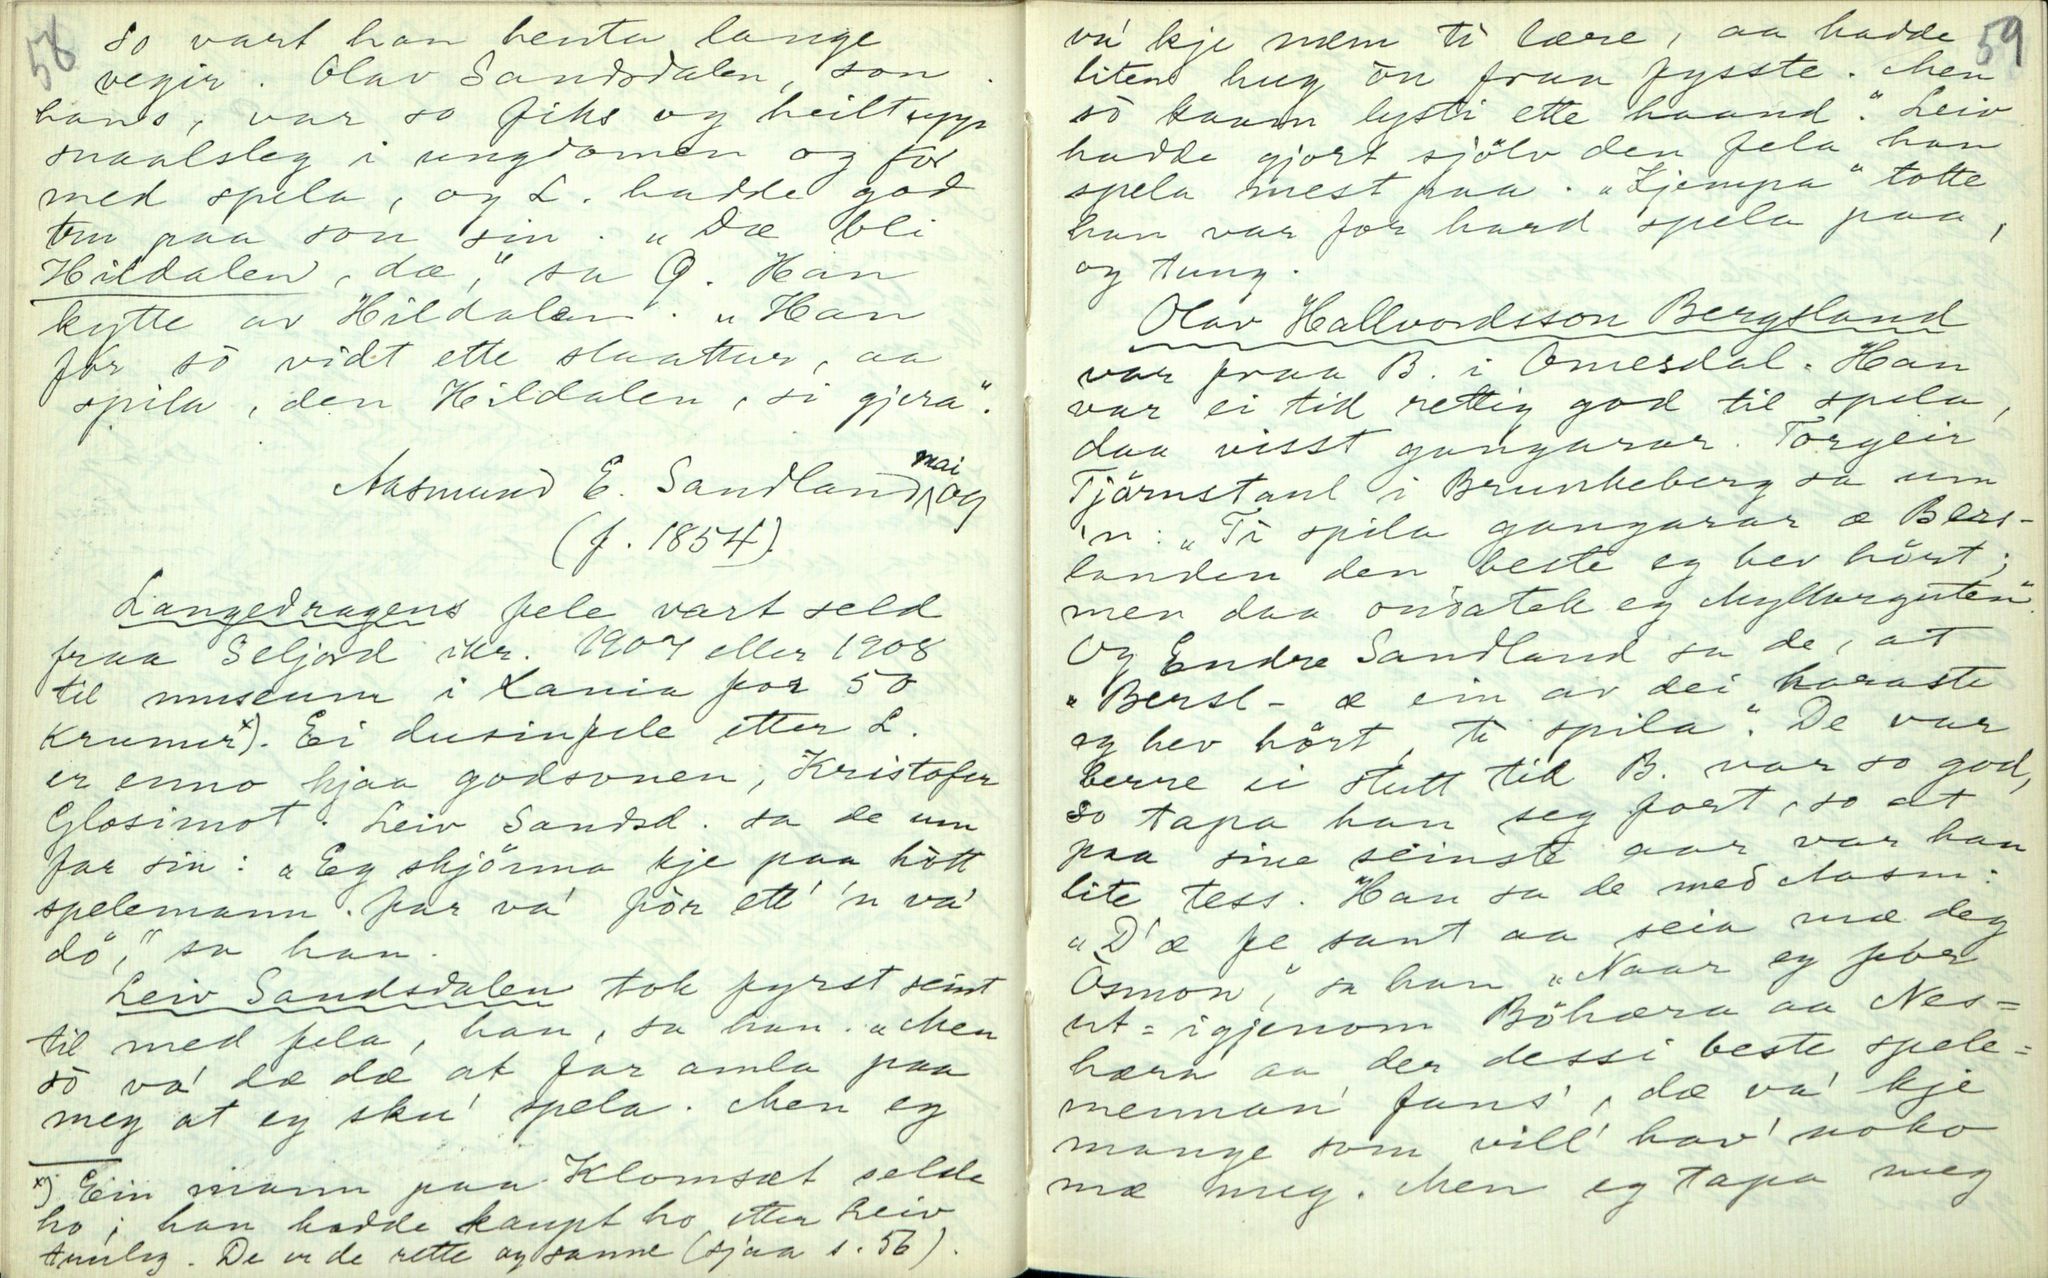 58
So vart han henta lange
vegir. Olav Sandsdalen, son
hans, var so fiks og heilt upp
maalsleg i ungdomen og for
med spela, og L. hadde god
tru paa son sin. „Dæ bli
Hildalen, dæ," sa O. Han
kytte av Hildalen. „Han
fór só vidt ette slaattur, aa
spila, den Hildalen, si gjera".
Aasmund E. Sandland, mai og
(f. 1854).
Langedragens fele vart seld
fraa Seljord ikr. 1907 eller 1908
til museum i Kania for 50
krunur x). Ei dusinfele etter L.
er enno hjaa godsonen, Kristofer
Glosimot. Leiv Sandsd. sa de um
far sin: „Eg skjöna kje paa hött
spelemann far va' för ett' 'n va'
dö," sa han.
Leiv Sandsdalen tok fyrst seint
til med fela, han, sa han. „Men
so va' dæ dæ at far amla paa
meg at eg sku' spela. Men eg
x) Ein mann paa Klomsæt selde
ho; han hadde kaupt ho etter Leiv
truleg. De er de rette og sanne (sjaa s. 56).
59
va' kje næm ti lære, aa hadde
liten hug ón fraa fysste. Men
so kaam lysti ette haand." Leiv
hadde gjort sjölv den fela han
spela mest paa. „Kjempa" totte
han var for hard spela paa,
og tung.
Olav Hallvordsson Bergsland
var fraa B. i Omesdal. Han
var ei tid rettig god til spela,
daa visst gangarar. Torgeir
Tjörnstaul i Brunkeberg sa um
'n: „Ti spila gangarar æ Bers-
landen den beste eg hev hört;
men daa undatek eg Myllarguten".
Og Endre Sandland sa de, at
„Bersl- æ ein av dei karaste
eg hev hört, ti spila". De var
berre ei stutt tid B. var so god,
so tapa han seg fort, so at
paa sine seinste aar var han
lite tess. Han sa de med Aasm:
„D'æ fe sant aa seia mæ deg
Osmon," sa han „Naar eg fór
ut=igjenom Böhæra aa Nes=
hæra aa der dessi beste spele=
mennan' fans', dæ va' kje
mange som vill' hav' noko
mæ meg. Men eg tapa meg